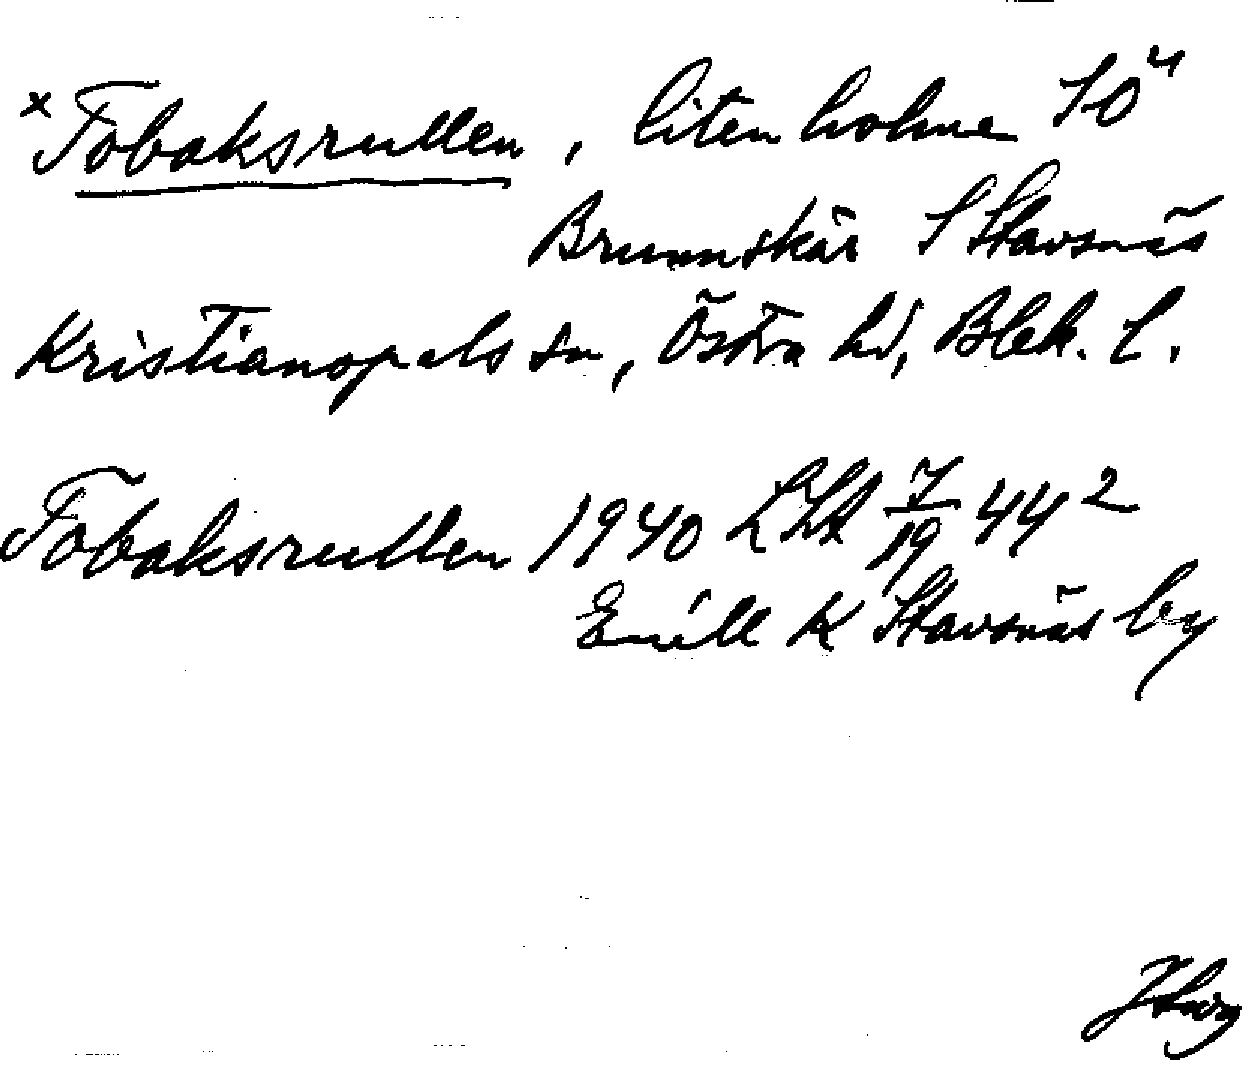 × Tobaksrullen, liten holme SO 4
Brunnskär S Stavsnäs
Kristianopels sn, Östra hd, Blek. l.
Tobaksrullen 1940 LSA 7/19 44 2
Enl K Stavsnäs by